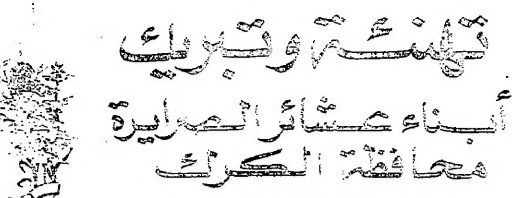 تهنئة وتبريك
أبناء عشائر الصرايرة
محافظة الكرك